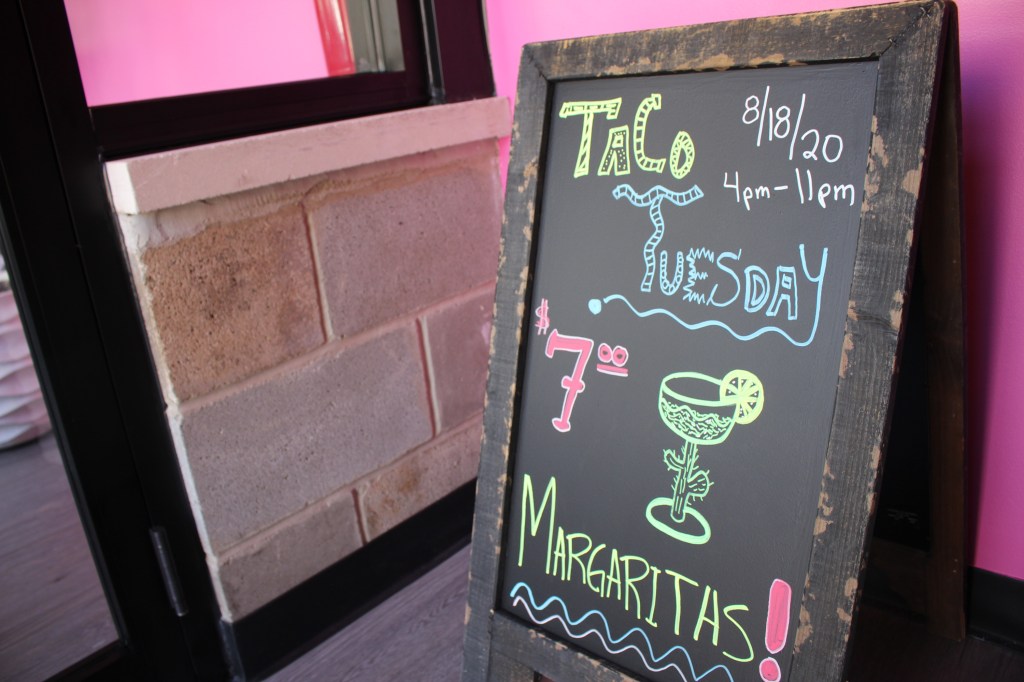 TACO
8/18/20
4pm-11pm
TUESDAY
$7⁰⁰
MARGARITAS!